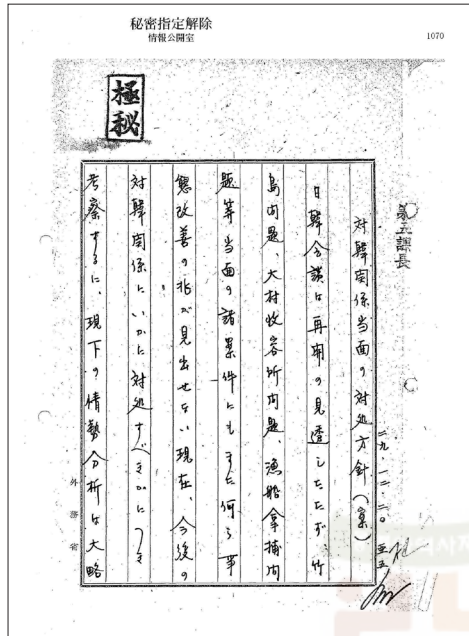 秘密指定解除
情報公開室
1070
極秘
第五課長
対韓関係当面の対処方針(案)
二九・一二・二〇 亜五
日韓会談は再開の見透したたず竹
島問題、大村収容所問題、漁船拿捕問
題等当面の諸案件にもまた何ら事
態改善の兆が見出せない現在、今後の
対韓関係にいかに対処すべきかにつき
考察するに、現下の情勢分析は大略
外務省